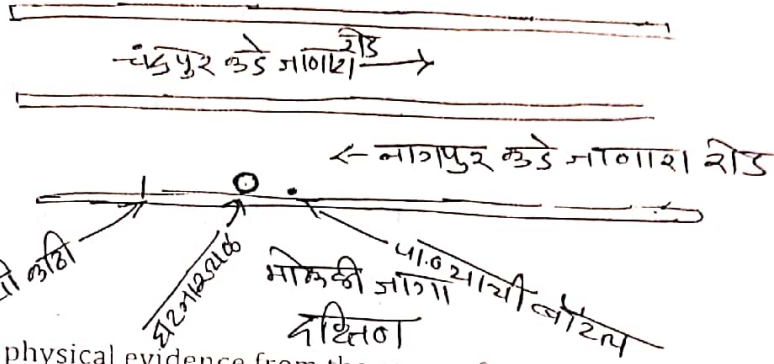 चंद्रपूर कडे जाणारा रोड →
← नागपुर कडे जाणारा रोड
काठी
घटनास्थळ
मोकळी जागा
पाण्याची बॉटल
दक्षिण
physical evidence from the